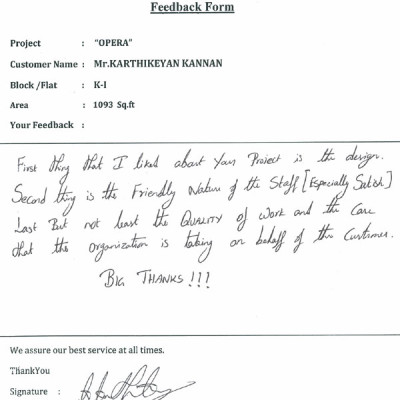 Feedback Form
Project : "OPERA"
Customer Name : Mr.KARTHIKEYAN KANNAN
Block /Flat : K-I
Area : 1093 Sq.ft
Your Feedback :
First thing that I liked about Your Project is the design.
Second thing is the Friendly Nature of the Staff [Especially Satish]
Last But not least the QUALITY of Work and the Care
that the organization is taking on behalf of the Customer.
BIG THANKS!!!
We assure our best service at all times.
ThankYou
Signature :